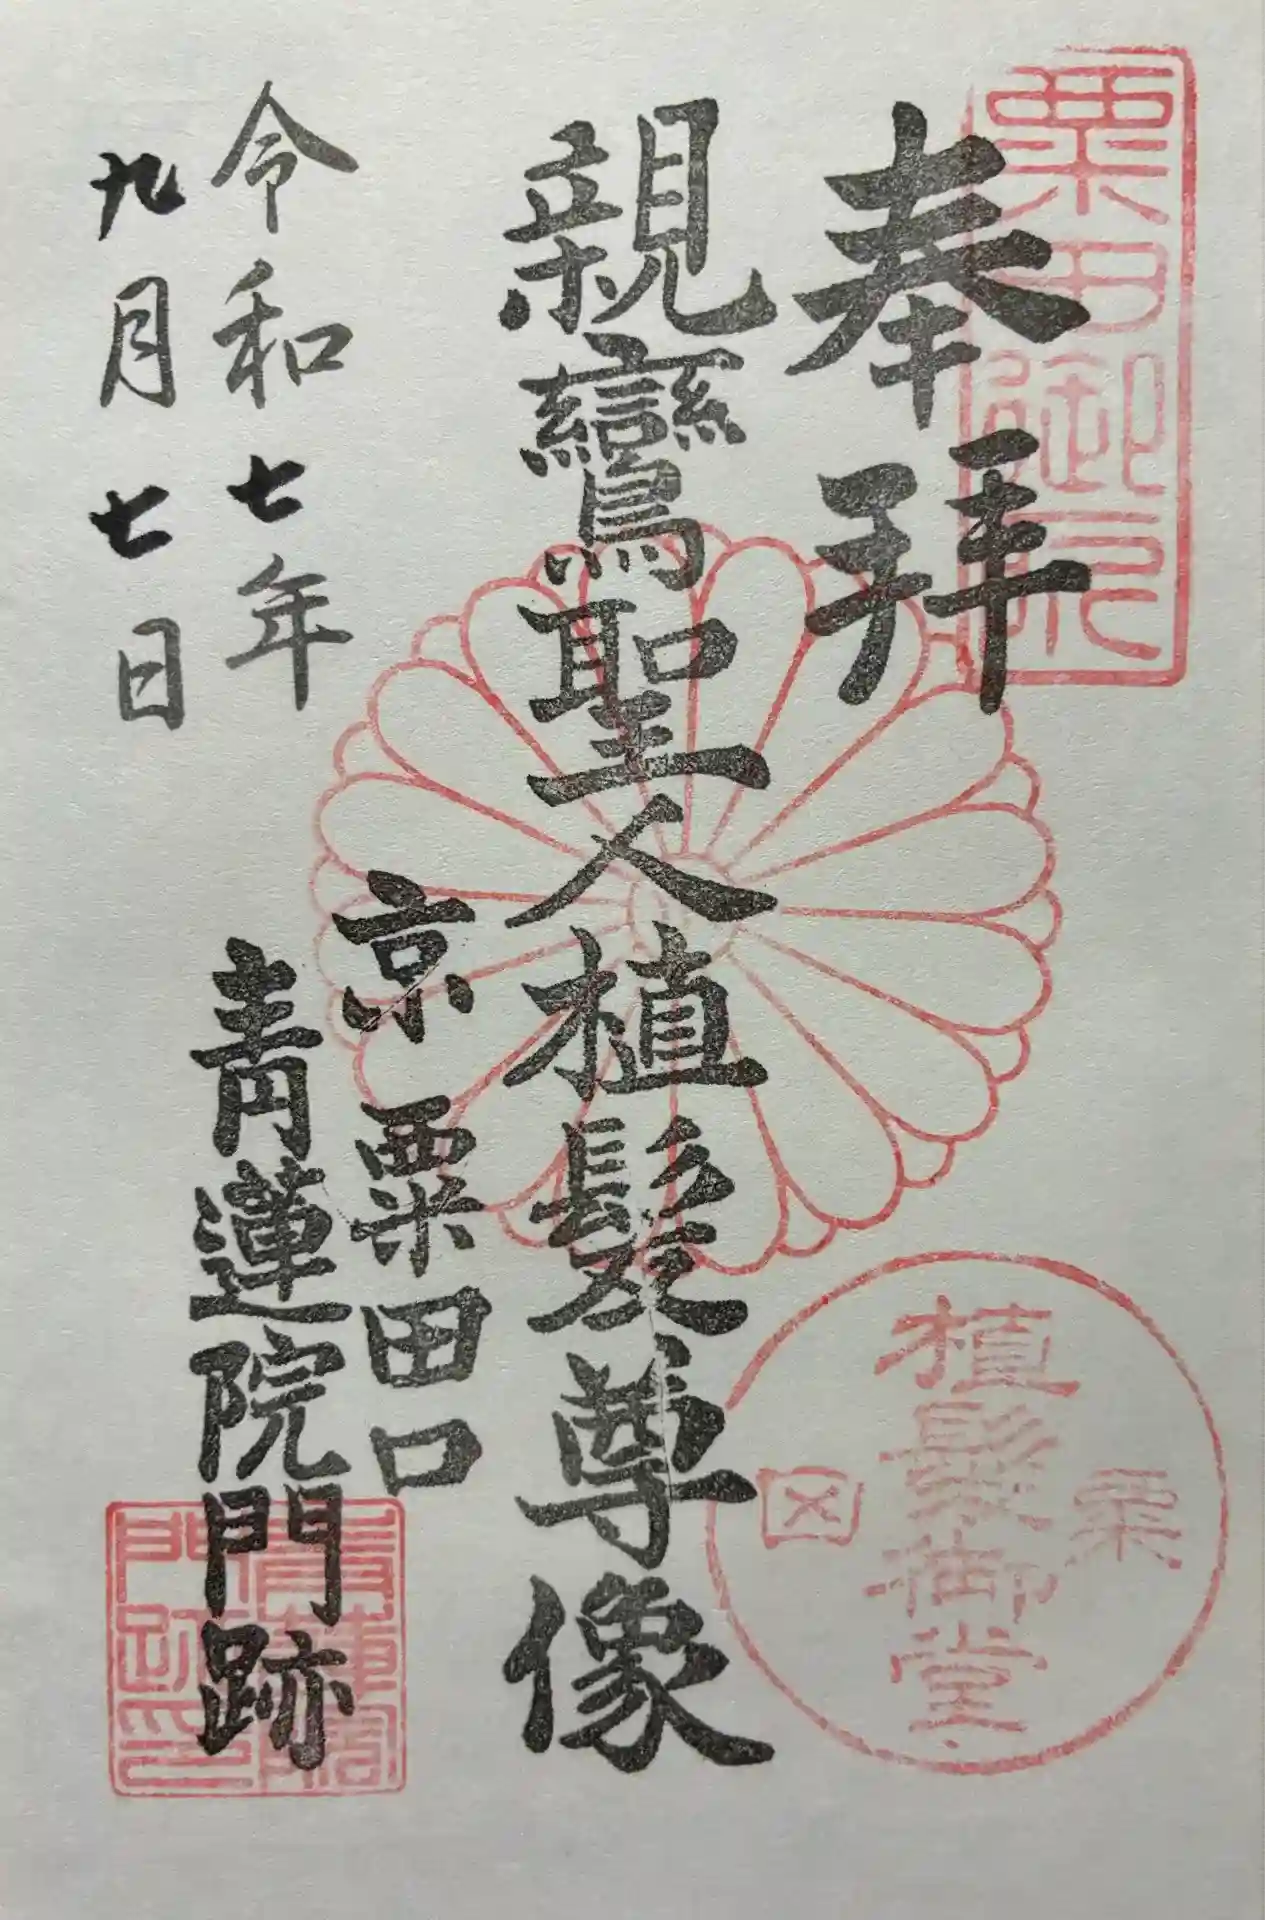 奉拝
親鸞聖人植髪尊像
京 粟田口
青蓮院門跡
令和七年
九月七日
粟田御所
植髪御堂
粟
青蓮院
門跡印